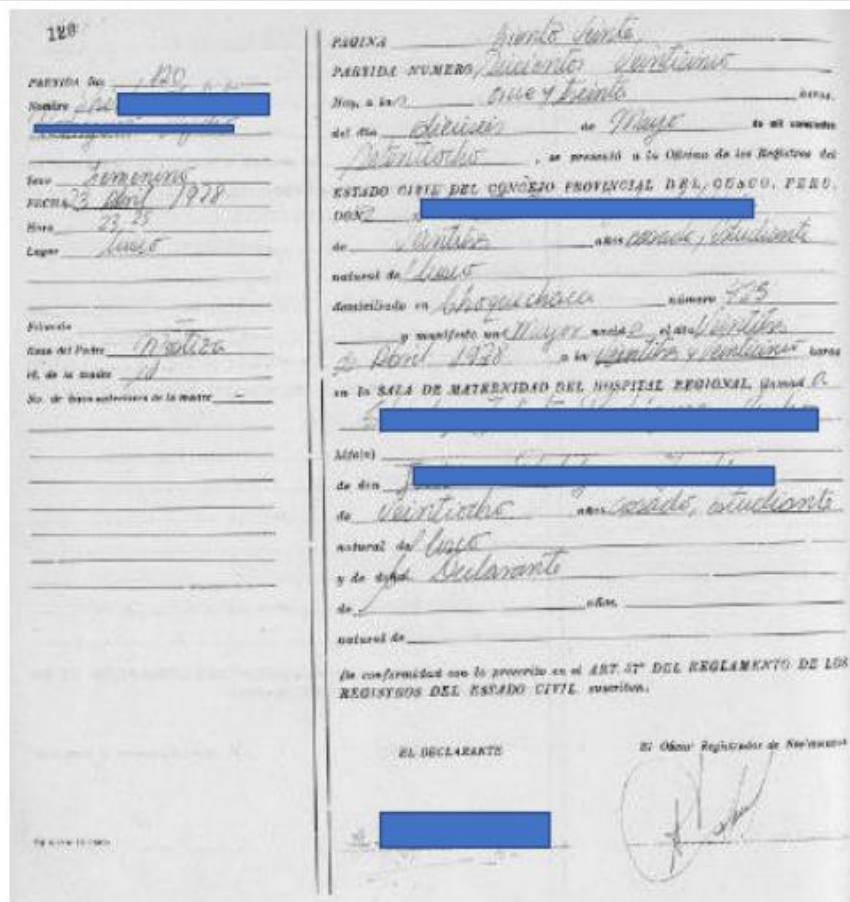 120
PARTIDA No. 120
Nombre
Sexo Femenino
FECHA 23 Abril 1978
Hora 23,25
Lugar Cusco
Filiación —
Raza del Padre Mestiza
id. de la madre id
No. de hijos anteriores de la madre —
PAGINA Ciento Veinte
PARTIDA NUMERO Veinticinco
Hoy, a las once y treinta horas,
del día dieciseis de Mayo de mil novecientos
Setentiocho, se presentó a la Oficina de los Registros del
ESTADO CIVIL DEL CONCEJO PROVINCIAL DEL CUSCO, PERU,
DON
de Veintitres años casada, estudiante
natural de Cusco
domiciliado en Choquechaca número
y manifestó una Mujer nacid a el día Veintitres
Abril 1978 a las Veintitres y Veinticinco horas
en la SALA DE MATERNIDAD DEL HOSPITAL REGIONAL, llamad a
hijo(a)
de don
de Veintiocho años casado, estudiante
natural de Cusco
y de doña La Declarante
de años,
natural de
De conformidad con lo prescrito en el ART. 57° DEL REGLAMENTO DE LOS
REGISTROS DEL ESTADO CIVIL suscriben.
EL DECLARANTE
El Oficial Registrador de Nacimientos